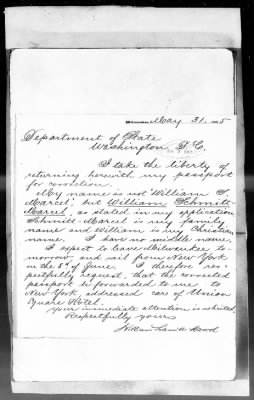 Milwaukee, May 31. 5
Department of State
Washington D. C.
I take the liberty of
returning herewith my passport
for correction.
My name is not "William S.
Marcel", but William Schmitt-
Marcel, as stated in my application
Schmitt-Marcel is my family
name and William is my Christian
name. I have no middle name.
I expect to leave Milwaukee to-
morrow, and sail from New York
on the of June. I therefore res-
pectfully request, that the corrected
passport be forwarded to me to
New York, addressed care of Union
Square Hotel.
Your immediate attention is solicited.
Respectfully yours
William Schmitt-Marcel